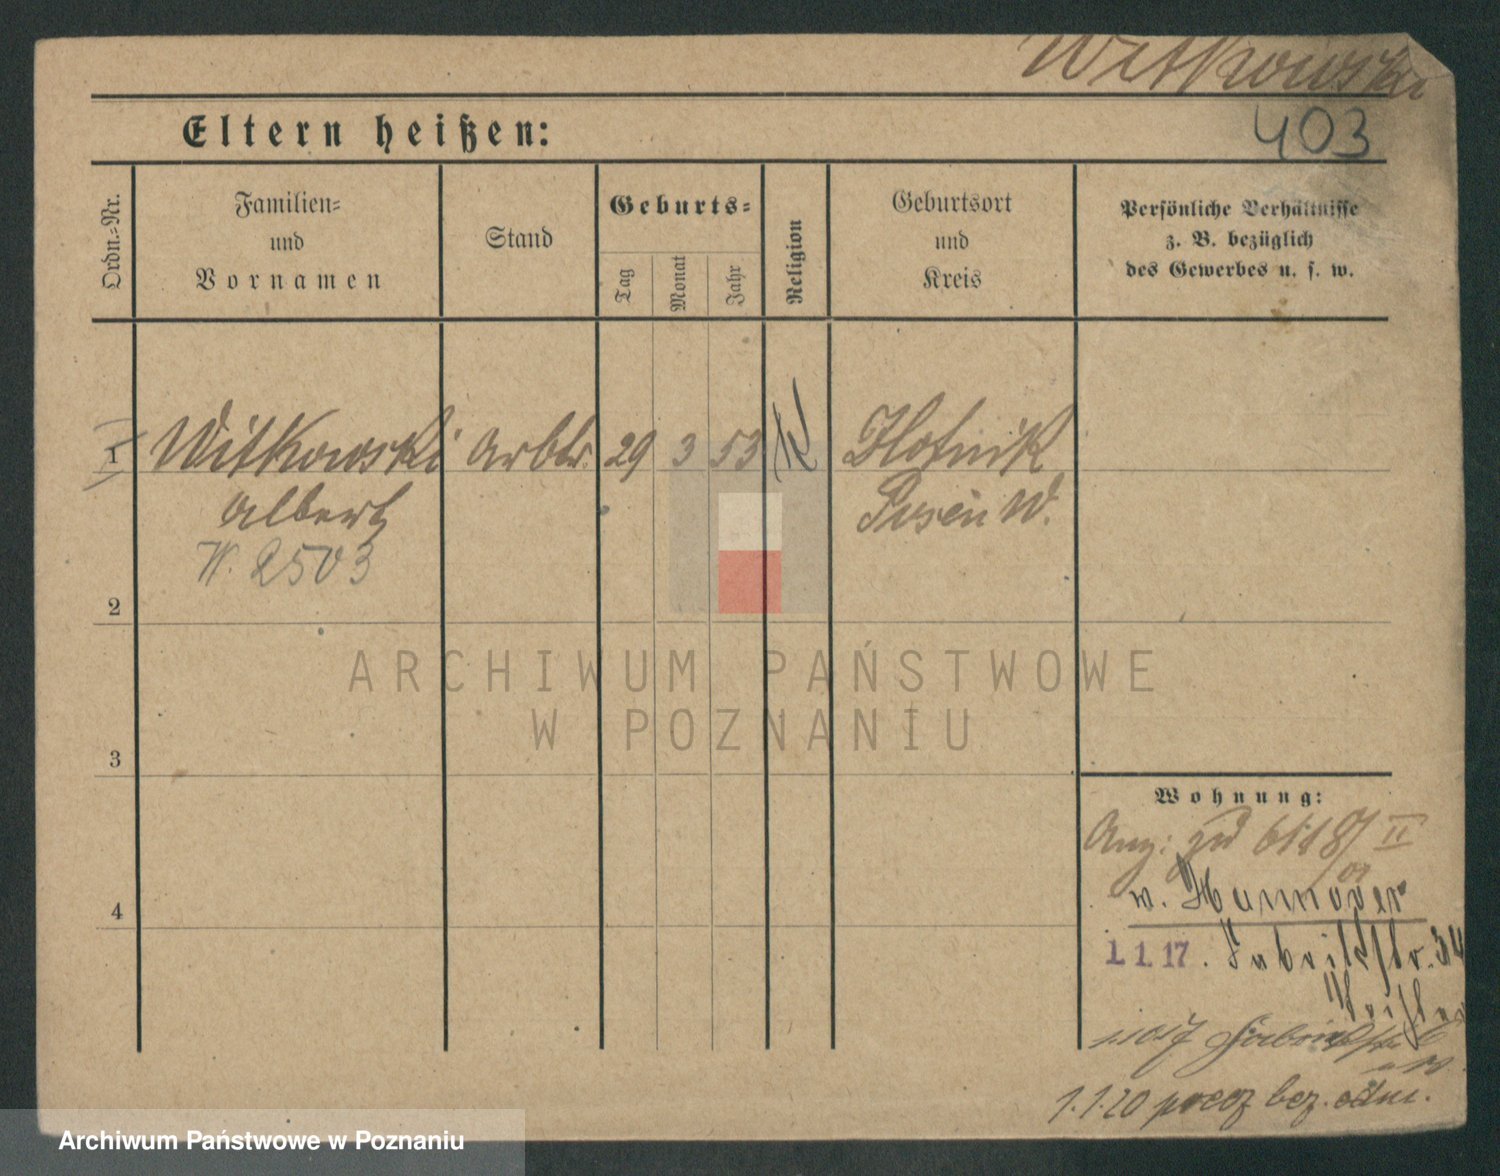 Witkowski
403
Eltern heißen:
Ordn.-Nr.
Familien-
und
Vornamen
Stand
Geburts-
Tag
Monat
Jahr
Religion
Geburtsort
und
Kreis
Persönliche Verhältnisse
z. B. bezüglich
des Gewerbes u. s. w.
1 Witkowski Arbtr. 29 3 53 K Złotnik
Albert Posen W.
W. 2503
2
ARCHIWUM PAŃSTWOWE
W POZNANIU
3
Wohnung:
Anz: 6118/ II
v. Hannover
4
1. 1. 17. Fabrikstr. 34
1.10.17 Fabrikstr.
1.1.20 precz bez odm.
Archiwum Państwowe w Poznaniu